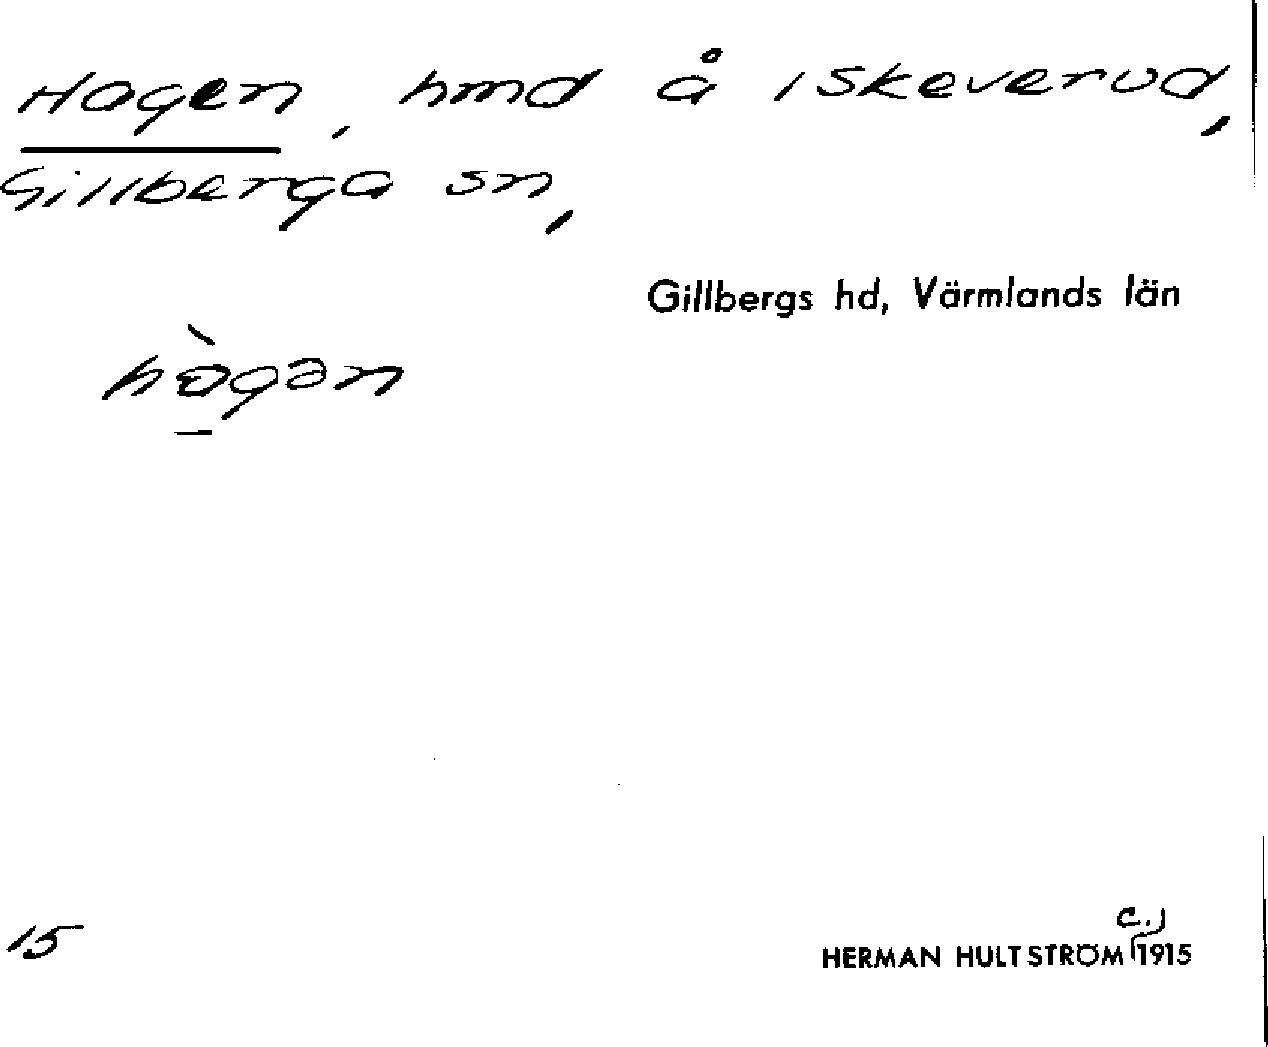 Hagen, hmd å Iskeverud,
Gillberga sn,
Gillbergs hd, Värmlands län
hàgən
15
c.)
HERMAN HULTSTRÖM 1915